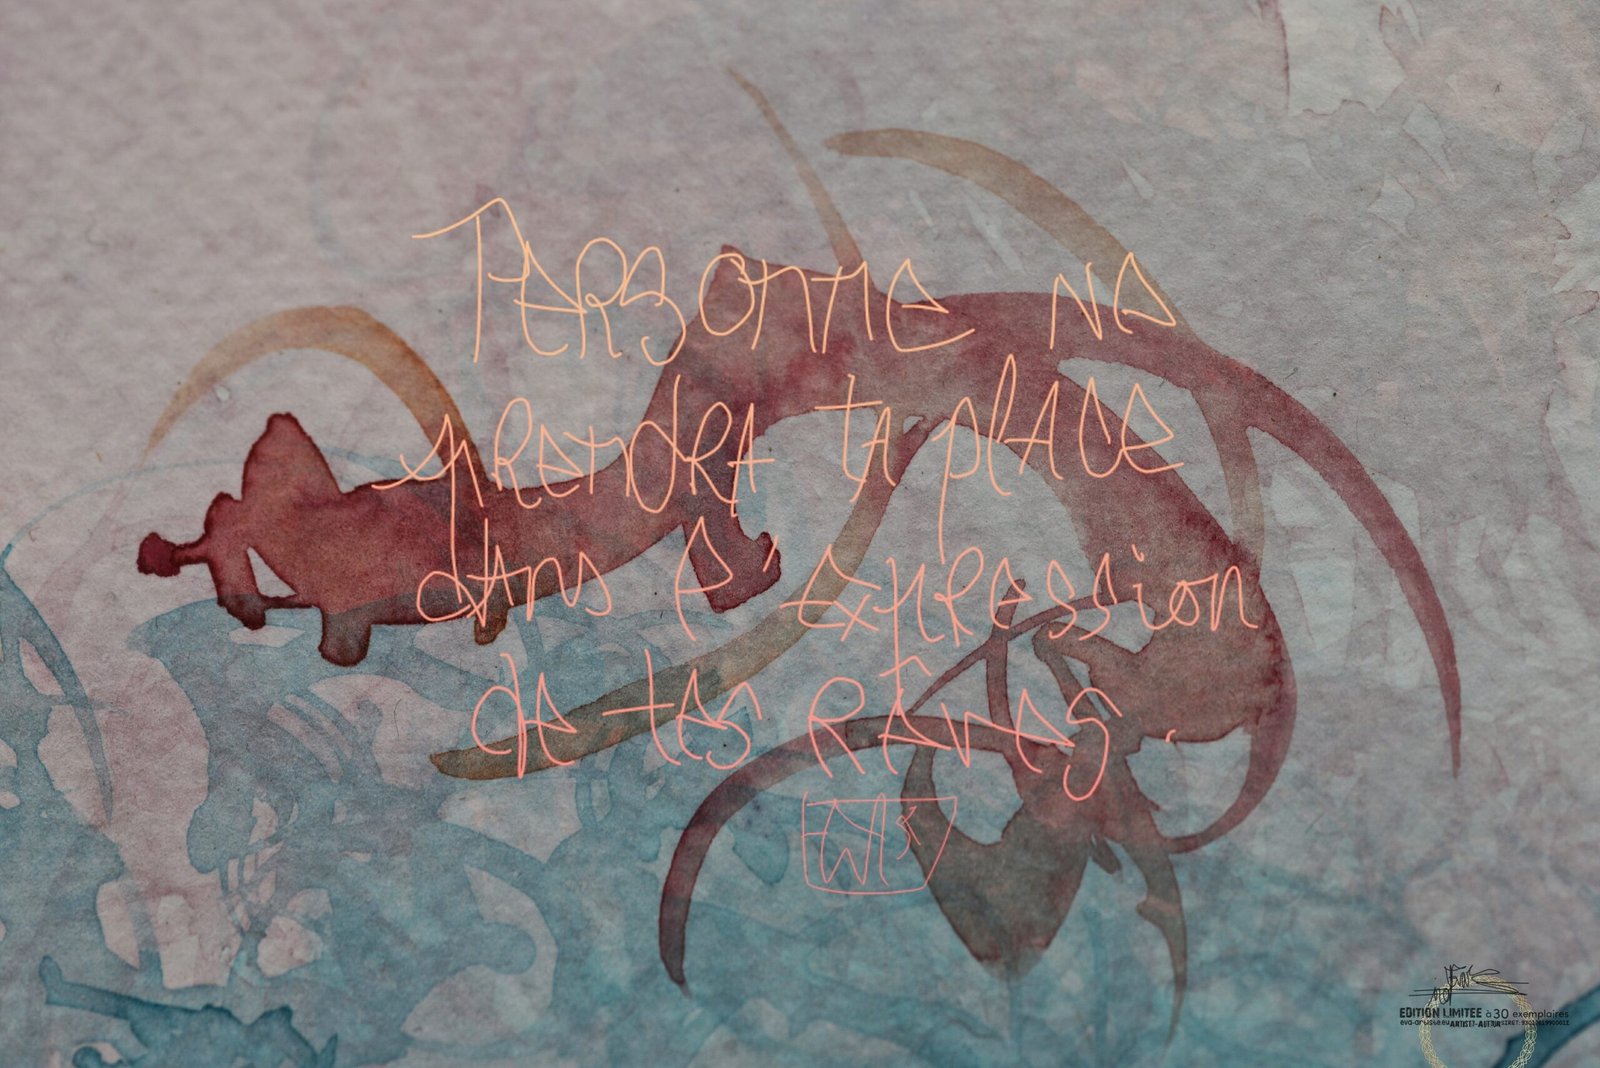 Personne ne
prendra ta place
dans l'expression
de tes rêves.
EDITION LIMITEE à 30 exemplaires
eva-artiste.eu ARTISTE-AUTEUR